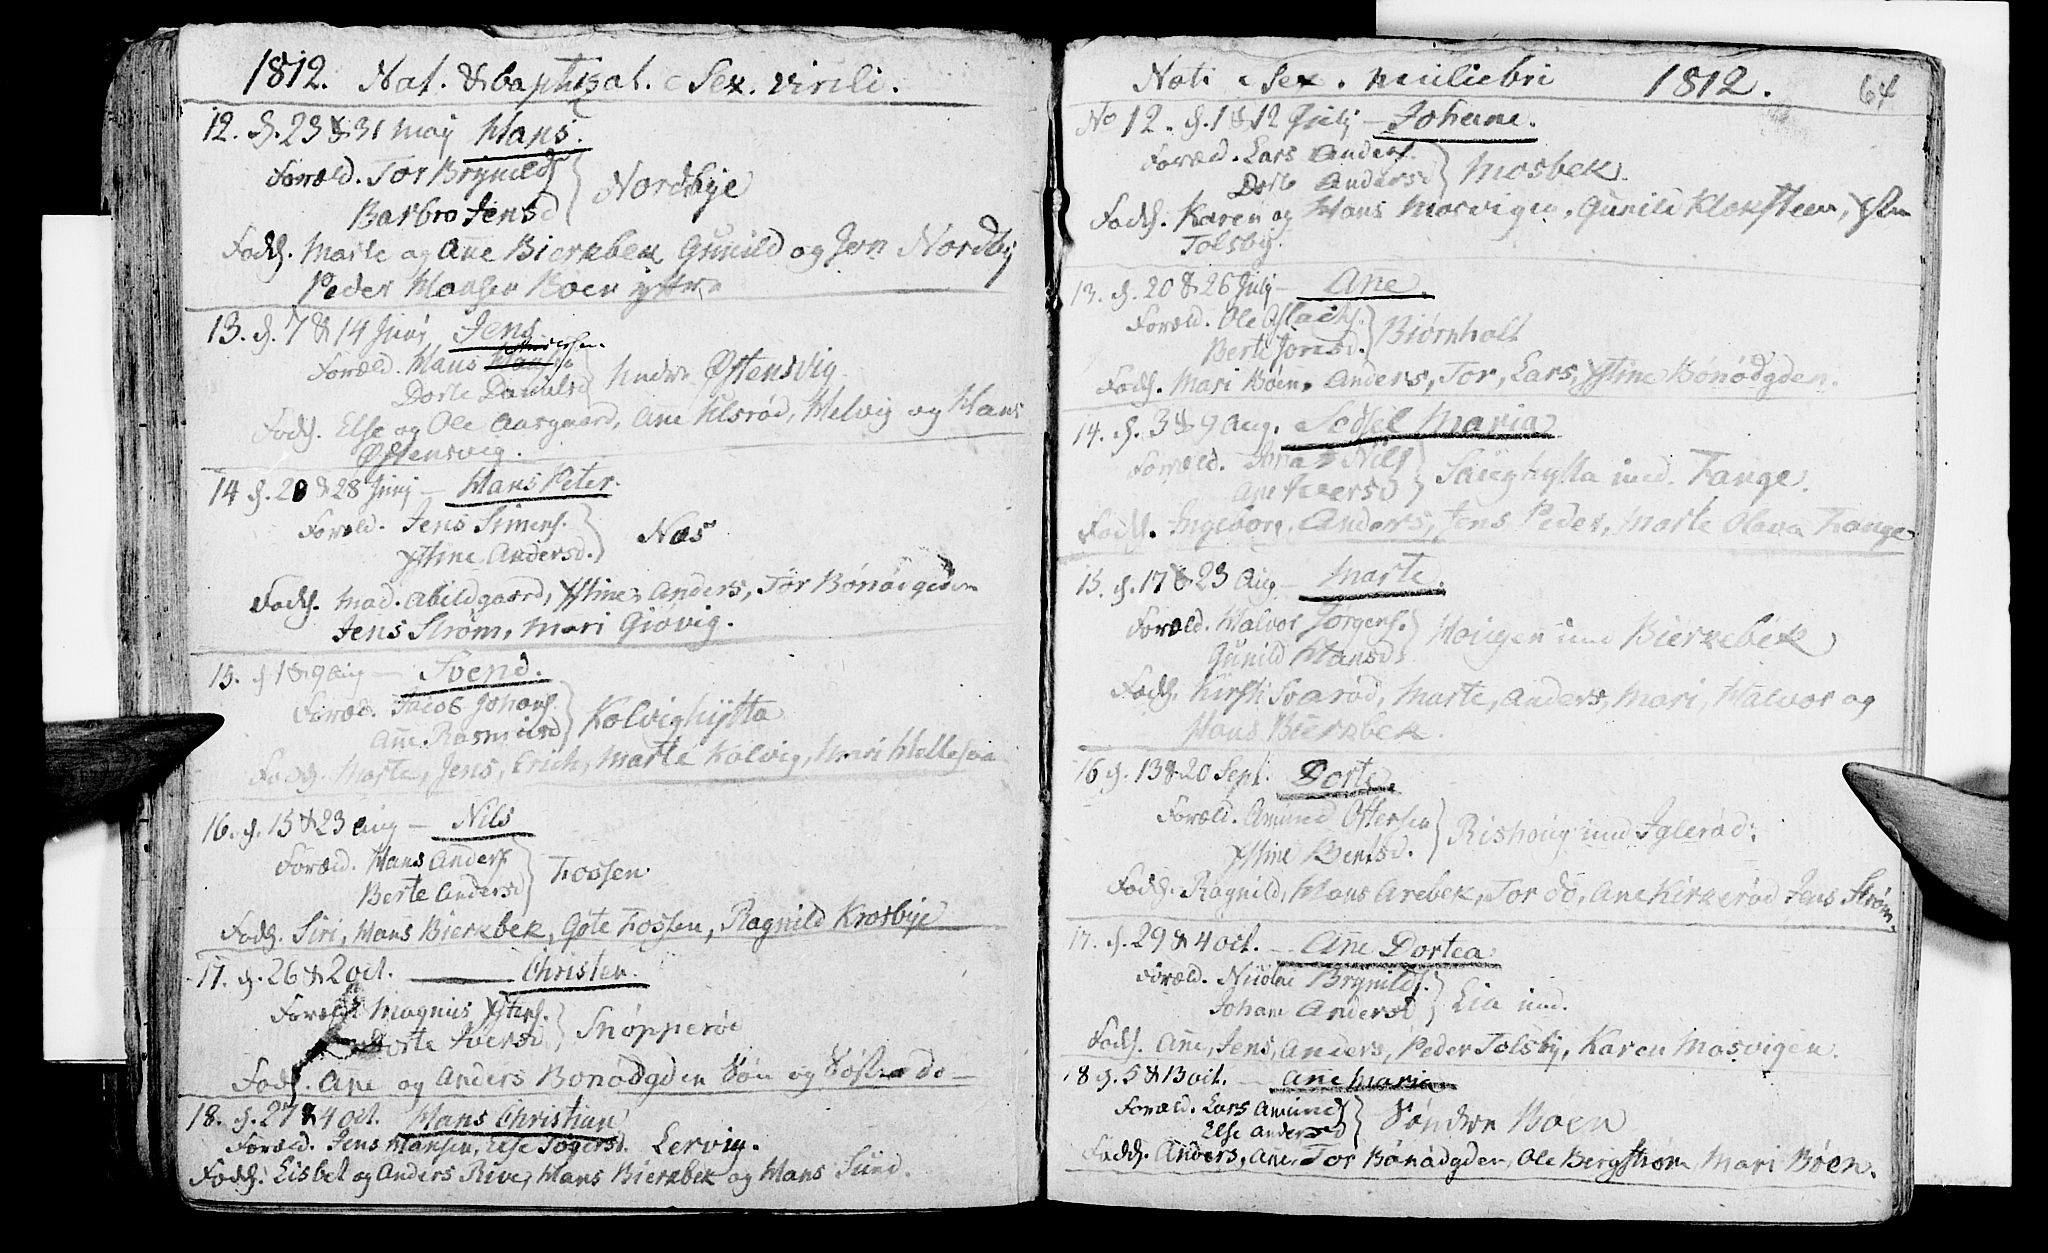 1812. Nat. & baptizat. c Sex. virili.
12. d. 23 & 31 Maij Hans.
Foræld. Tor Brynilds
Barbro Jensd } Nordbye
Fadd. Marte og Ane Bierkebek Gunild og Jern Nordby
Peder Hansen Boen yttre
13. d. 7 & 14 Junij Jens
Foræld. Hans Andersen.
Dorte Danielsd } Nedre Østensvig
Fadd. Else og Ole Aasgaard, Ane Ulsrød, Helvig og Hans
Østensvig.
14 d. 20 & 28 Junij — Hans Peter.
Foræld. Jens Simens.
Xstine Andersd. } Næs
Fadd. Mad. Abildgaard, Xstine, Anders, Tor Bønødgden
Jens Strøm, Mari Giøvig.
15. d 1 & 9 Aug — Svend.
Foræld. Jacob Johans.
Ane Rasmusd } Kolvighytta
Fadd. Marte, Jens, Erich, Marte Kolvig, Mari
16. d. 15 & 23 Aug — Nils
Foræld. Hans Anders
Berte Andersd } Fossen
Fadd. Siri, Hans Bierkebek, Gøte Fossen, Ragnild Krosbye
17. d. 26 & 2 oct. — Christen.
Foræld. Magnus Xstens.
Dorte Iversd } Snøpperød
Fadd. Ane og Anders Bønødgden Søn og Søstre do —
18. d. 27 & 4 oct. Hans Christian
Foræld. Jens Hansen, Else Togersd. Lervig.
Fadd. Lisbet og Anders Rive, Hans Bierkebek og Hans Sund.
Nati c Sex. muliebri 1812. 64
No 12. d. 1 & 12 Julj — Johane.
Foræld. Lars Anders.
Dorte Andersd } Mosbek.
Fadd. Karen og Hans Mosvigen, Gunild Kloksteen, Xsten
Tolsby.
13. d. 20 & 26 Julj — Ane.
Foræld. Ole Oslachs.
Berte Joensd. } Biørnholt
Fadd. Mari Bøen, Anders, Tor, Lars, Xstine Bønødgden.
14. d. 3 & 9 Aug. Sidsel Maria
Foræld. Jonas Nils
Ane Iversd } Saughytta und. Tange.
Fadd. Ingeborg, Anders, Jens Peder, Marte Olava Tange
15. d. 17 & 23 Aug — Marte.
Foræld. Halvor Jørgens.
Gunild Hansd } Haugen und Bierkebek
Fadd. Kirsti Svarød, Marte, Anders, Mari, Halvor og
Hans Bierkebek.
16 d. 13 & 20 Sept. Dorte
Foræld. Amund Ottersen
Xstine Bentsd. } Rishoug und Iglerød.
Fadd. Ragnild, Hans Arebek, Tor do, Ane Kirkerød Jens Strøm.
17. d. 29 & 4 oct. — Ane Dortea
Foræld. Nicolai Brynilds.
Johane Andersd } Lia und.
Fadd. Ane, Jens, Anders, Peder Tolsby, Karen Mosvigen.
18 d. 5 & 13 oct. — Ane Maria
Foræld. Lars Amunds
Else Andersd } Søndre Boen
Fadd. Anders, Ane, Tor Bønødgden, Ole Bergstrøm, Mari Bøen.